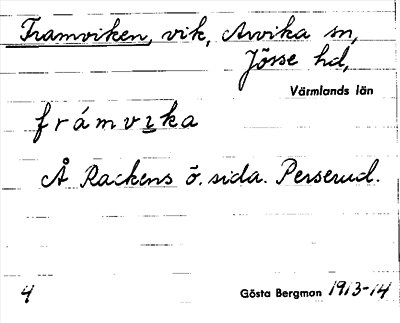 Framviken, vik, Arvika sn,
Jösse hd,
Värmlands län
frámvıka
Å Rackens ö. sida. Perserud.
4 Gösta Bergman 1913-14